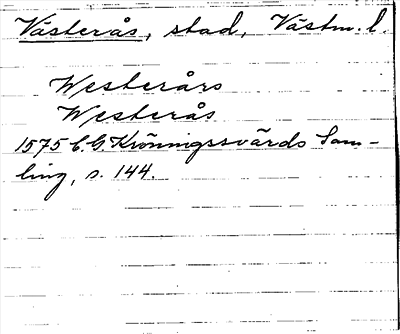 Västerås, stad, Västm. l.
Westerårs
Westerås
1575 C. G. Krönnigssvärds Sam-
ling, s. 144.